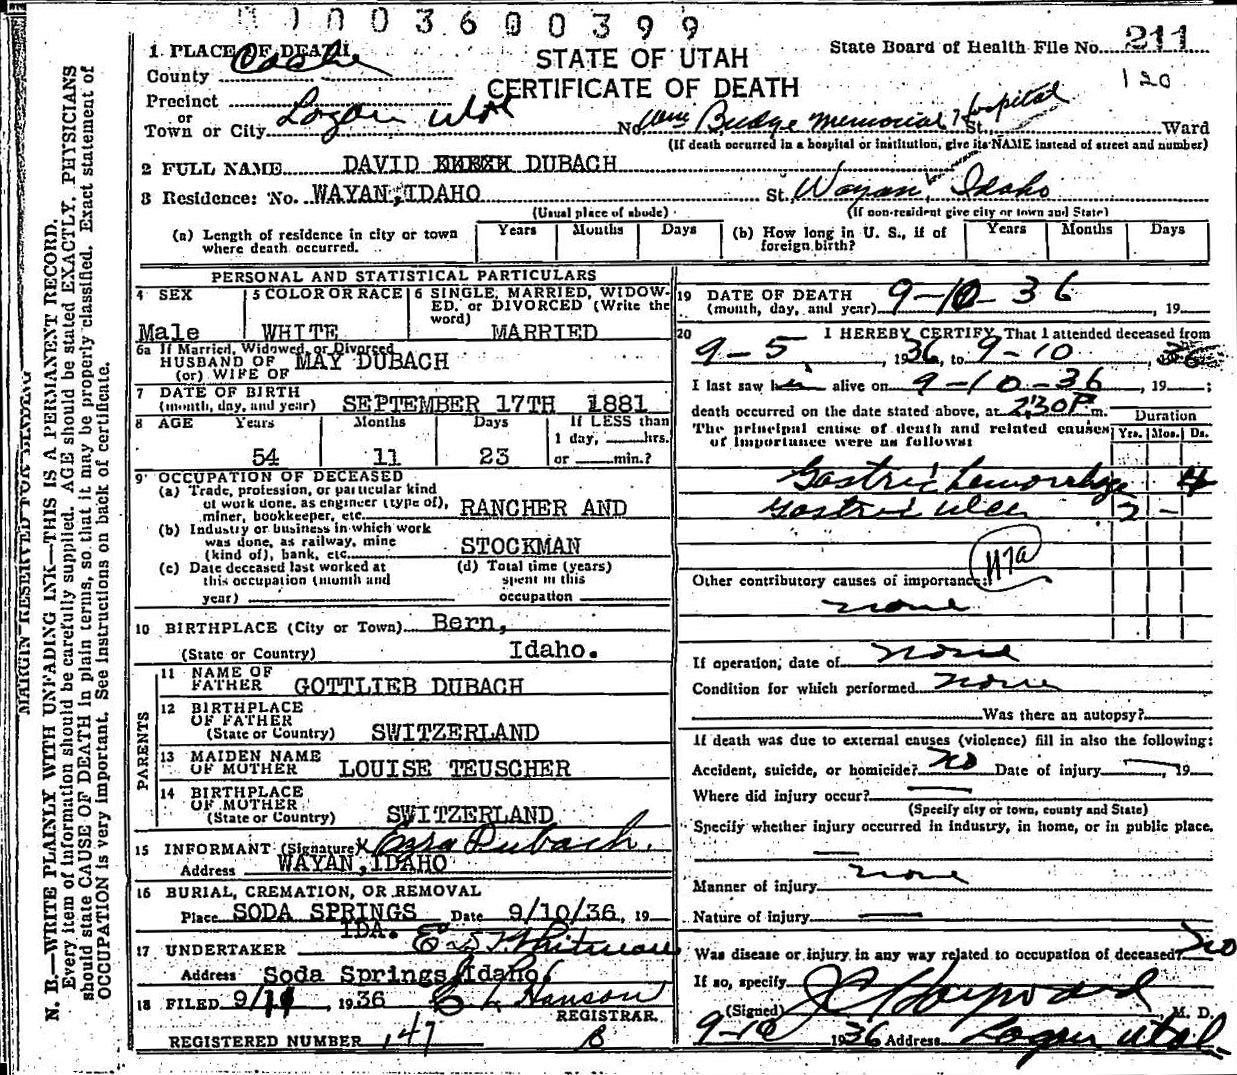 0 0 3 6 0 0 3 9 9
STATE OF UTAH
CERTIFICATE OF DEATH
State Board of Health File No. 211
120
1 PLACE OF DEATH
County Cache
Precinct
or
Town or City Logan Utah No. Wm Budge Memorial Hospital St. Ward
(If death occurred in a hospital or institution, give its NAME instead of street and number)
2 FULL NAME DAVID DUBACH
3 Residence: No. WAYAN, IDAHO St. Wayan, Idaho
(Usual place of abode) (If non-resident give city or town and State)
(a) Length of residence in city or town where death occurred. Years Months Days (b) How long in U. S., if of foreign birth? Years Months Days
PERSONAL AND STATISTICAL PARTICULARS
4 SEX 5 COLOR OR RACE 6 SINGLE, MARRIED, WIDOW-
ED, or DIVORCED (Write the
word)
Male WHITE MARRIED
6a If Married, Widowed, or Divorced
HUSBAND OF MAY DUBACH
(or) WIFE OF
7 DATE OF BIRTH
(month, day, and year) SEPTEMBER 17TH 1881
8 AGE Years Months Days If LESS than
1 day, hrs.
54 11 23 or min.?
9 OCCUPATION OF DECEASED
(a) Trade, profession, or particular kind
of work done, as engineer (type of),
miner, bookkeeper, etc. RANCHER AND
(b) Industry or business in which work
was done, as railway, mine
(kind of), bank, etc. STOCKMAN
(c) Date deceased last worked at
this occupation (month and
year)
(d) Total time (years)
spent in this
occupation
10 BIRTHPLACE (City or Town) Bern,
(State or Country) Idaho.
PARENTS
11 NAME OF
FATHER GOTTLIEB DUBACH
12 BIRTHPLACE
OF FATHER
(State or Country) SWITZERLAND
13 MAIDEN NAME
OF MOTHER LOUISE TEUSCHER
14 BIRTHPLACE
OF MOTHER
(State or Country) SWITZERLAND
15 INFORMANT (Signature) x Ezra Dubach.
Address WAYAN, IDAHO
16 BURIAL, CREMATION, OR REMOVAL
Place SODA SPRINGS Date 9/10/36, 19
IDA.
17 UNDERTAKER E D Whitman
Address Soda Springs, Idaho,
18 FILED 9/11 1936 E L Hanson
REGISTRAR.
REGISTERED NUMBER 147 B
19 DATE OF DEATH
(month, day, and year) 9-10-36, 19
20 I HEREBY CERTIFY, That I attended deceased from
9-5, 1936, to 9-10, 1936
I last saw him alive on 9-10-36, 19 ;
death occurred on the date stated above, at 2:30 P m.
Duration
The principal cause of death and related causes Yrs. Mos. Ds.
of importance were as follows:
Gastric hemorrhage 4
Gastric ulcer 2 -
117a
Other contributory causes of importance:
none
If operation, date of none
Condition for which performed none
Was there an autopsy?
If death was due to external causes (violence) fill in also the following:
Accident, suicide, or homicide? no Date of injury , 19
Where did injury occur?
(Specify city or town, county and State)
Specify whether injury occurred in industry, in home, or in public place.
Manner of injury none
Nature of injury
Was disease or injury in any way related to occupation of deceased? no
If so, specify
(Signed) J C Hayward, M. D.
9-10 1936 Address Logan Utah.
MARGIN RESERVED FOR BINDING
N. B.—WRITE PLAINLY WITH UNFADING INK—THIS IS A PERMANENT RECORD.
Every item of information should be carefully supplied. AGE should be stated EXACTLY. PHYSICIANS
should state CAUSE OF DEATH in plain terms, so that it may be properly classified. Exact statement of
OCCUPATION is very important. See instructions on back of certificate.